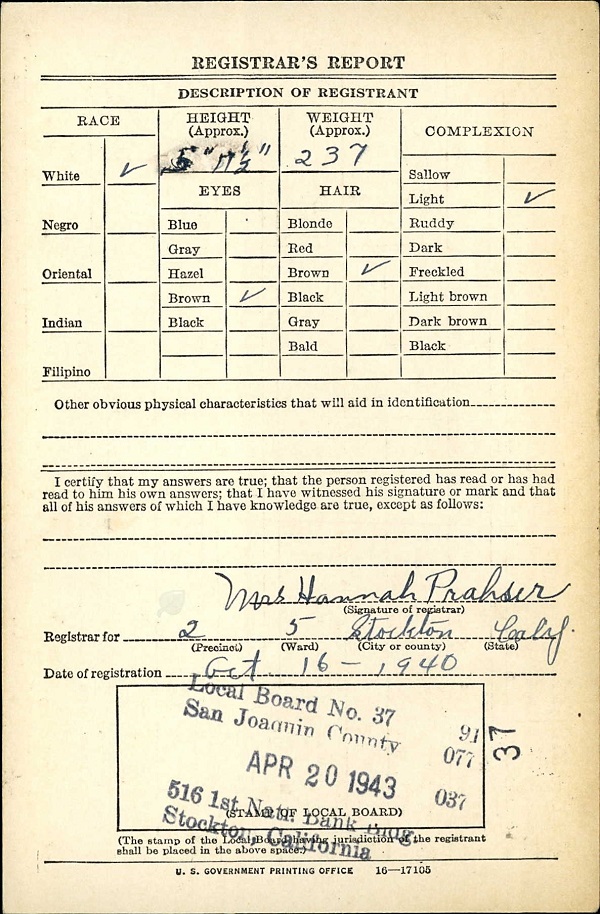 REGISTRAR'S REPORT
DESCRIPTION OF REGISTRANT
RACE
HEIGHT
(Approx.)
WEIGHT
(Approx.)
COMPLEXION
5" 11½"
237
White ✓
Negro
Oriental
Indian
Filipino
EYES
Blue
Gray
Hazel
Brown ✓
Black
HAIR
Blonde
Red
Brown ✓
Black
Gray
Bald
Sallow
Light ✓
Ruddy
Dark
Freckled
Light brown
Dark brown
Black
Other obvious physical characteristics that will aid in identification
I certify that my answers are true; that the person registered has read or has had
read to him his own answers; that I have witnessed his signature or mark and that
all of his answers of which I have knowledge are true, except as follows:
Mrs Hannah Prahser
(Signature of registrar)
Registrar for 2 5 Stockton Calif.
(Precinct) (Ward) (City or county) (State)
Date of registration Oct. 16-1940
Local Board No. 37
San Joaquin County
91
077
037
37
APR 20 1943
516 1st Natn. Bank Bldg
Stockton, California
(STAMP OF LOCAL BOARD)
(The stamp of the Local Board having jurisdiction of the registrant
shall be placed in the above space.)
U. S. GOVERNMENT PRINTING OFFICE 16—17105